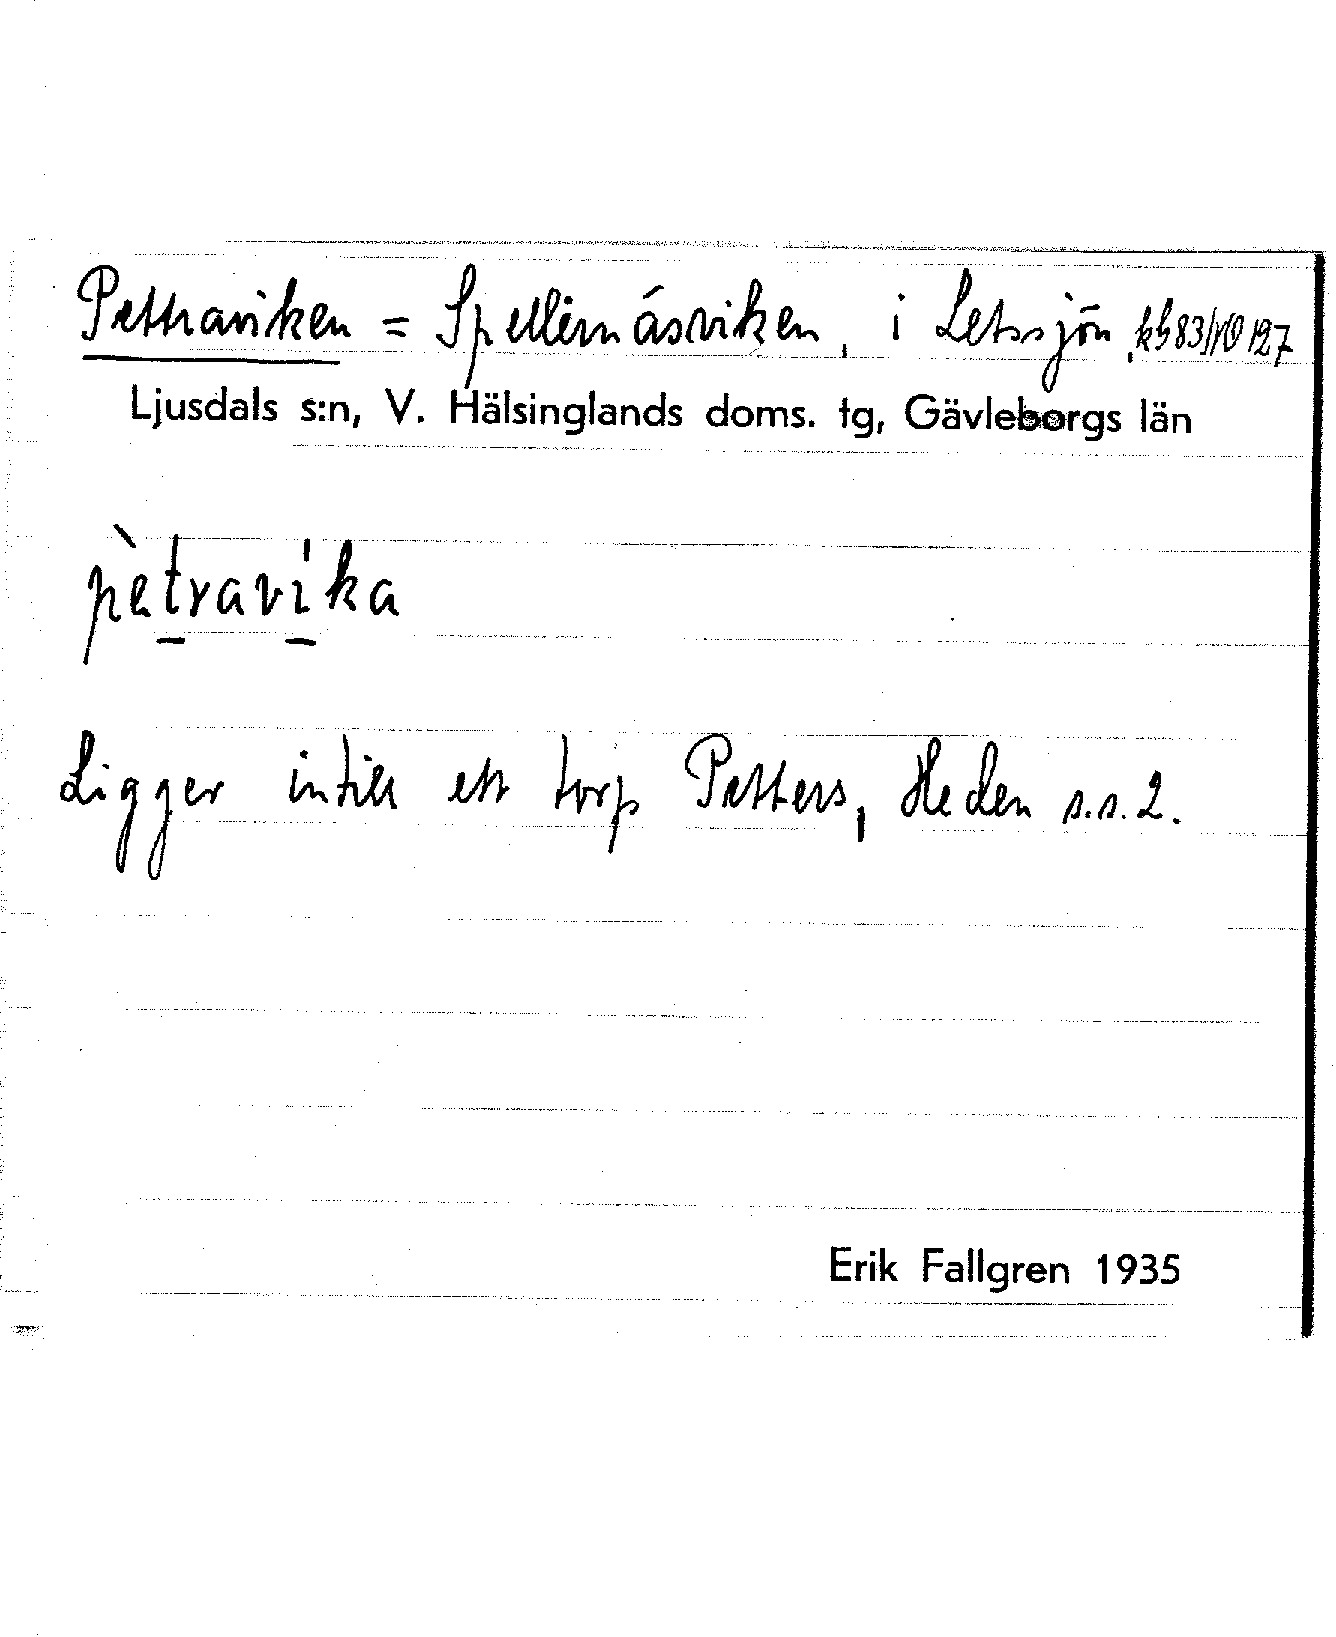 Pettraviken = Spellernåsviken, i Letssjön, kb83/NO 127
Ljusdals s:n, V. Hälsinglands doms. tg, Gävleborgs län
pètravíka
Ligger intill ett torp Petters, Heden s.s.2.
Erik Fallgren 1935